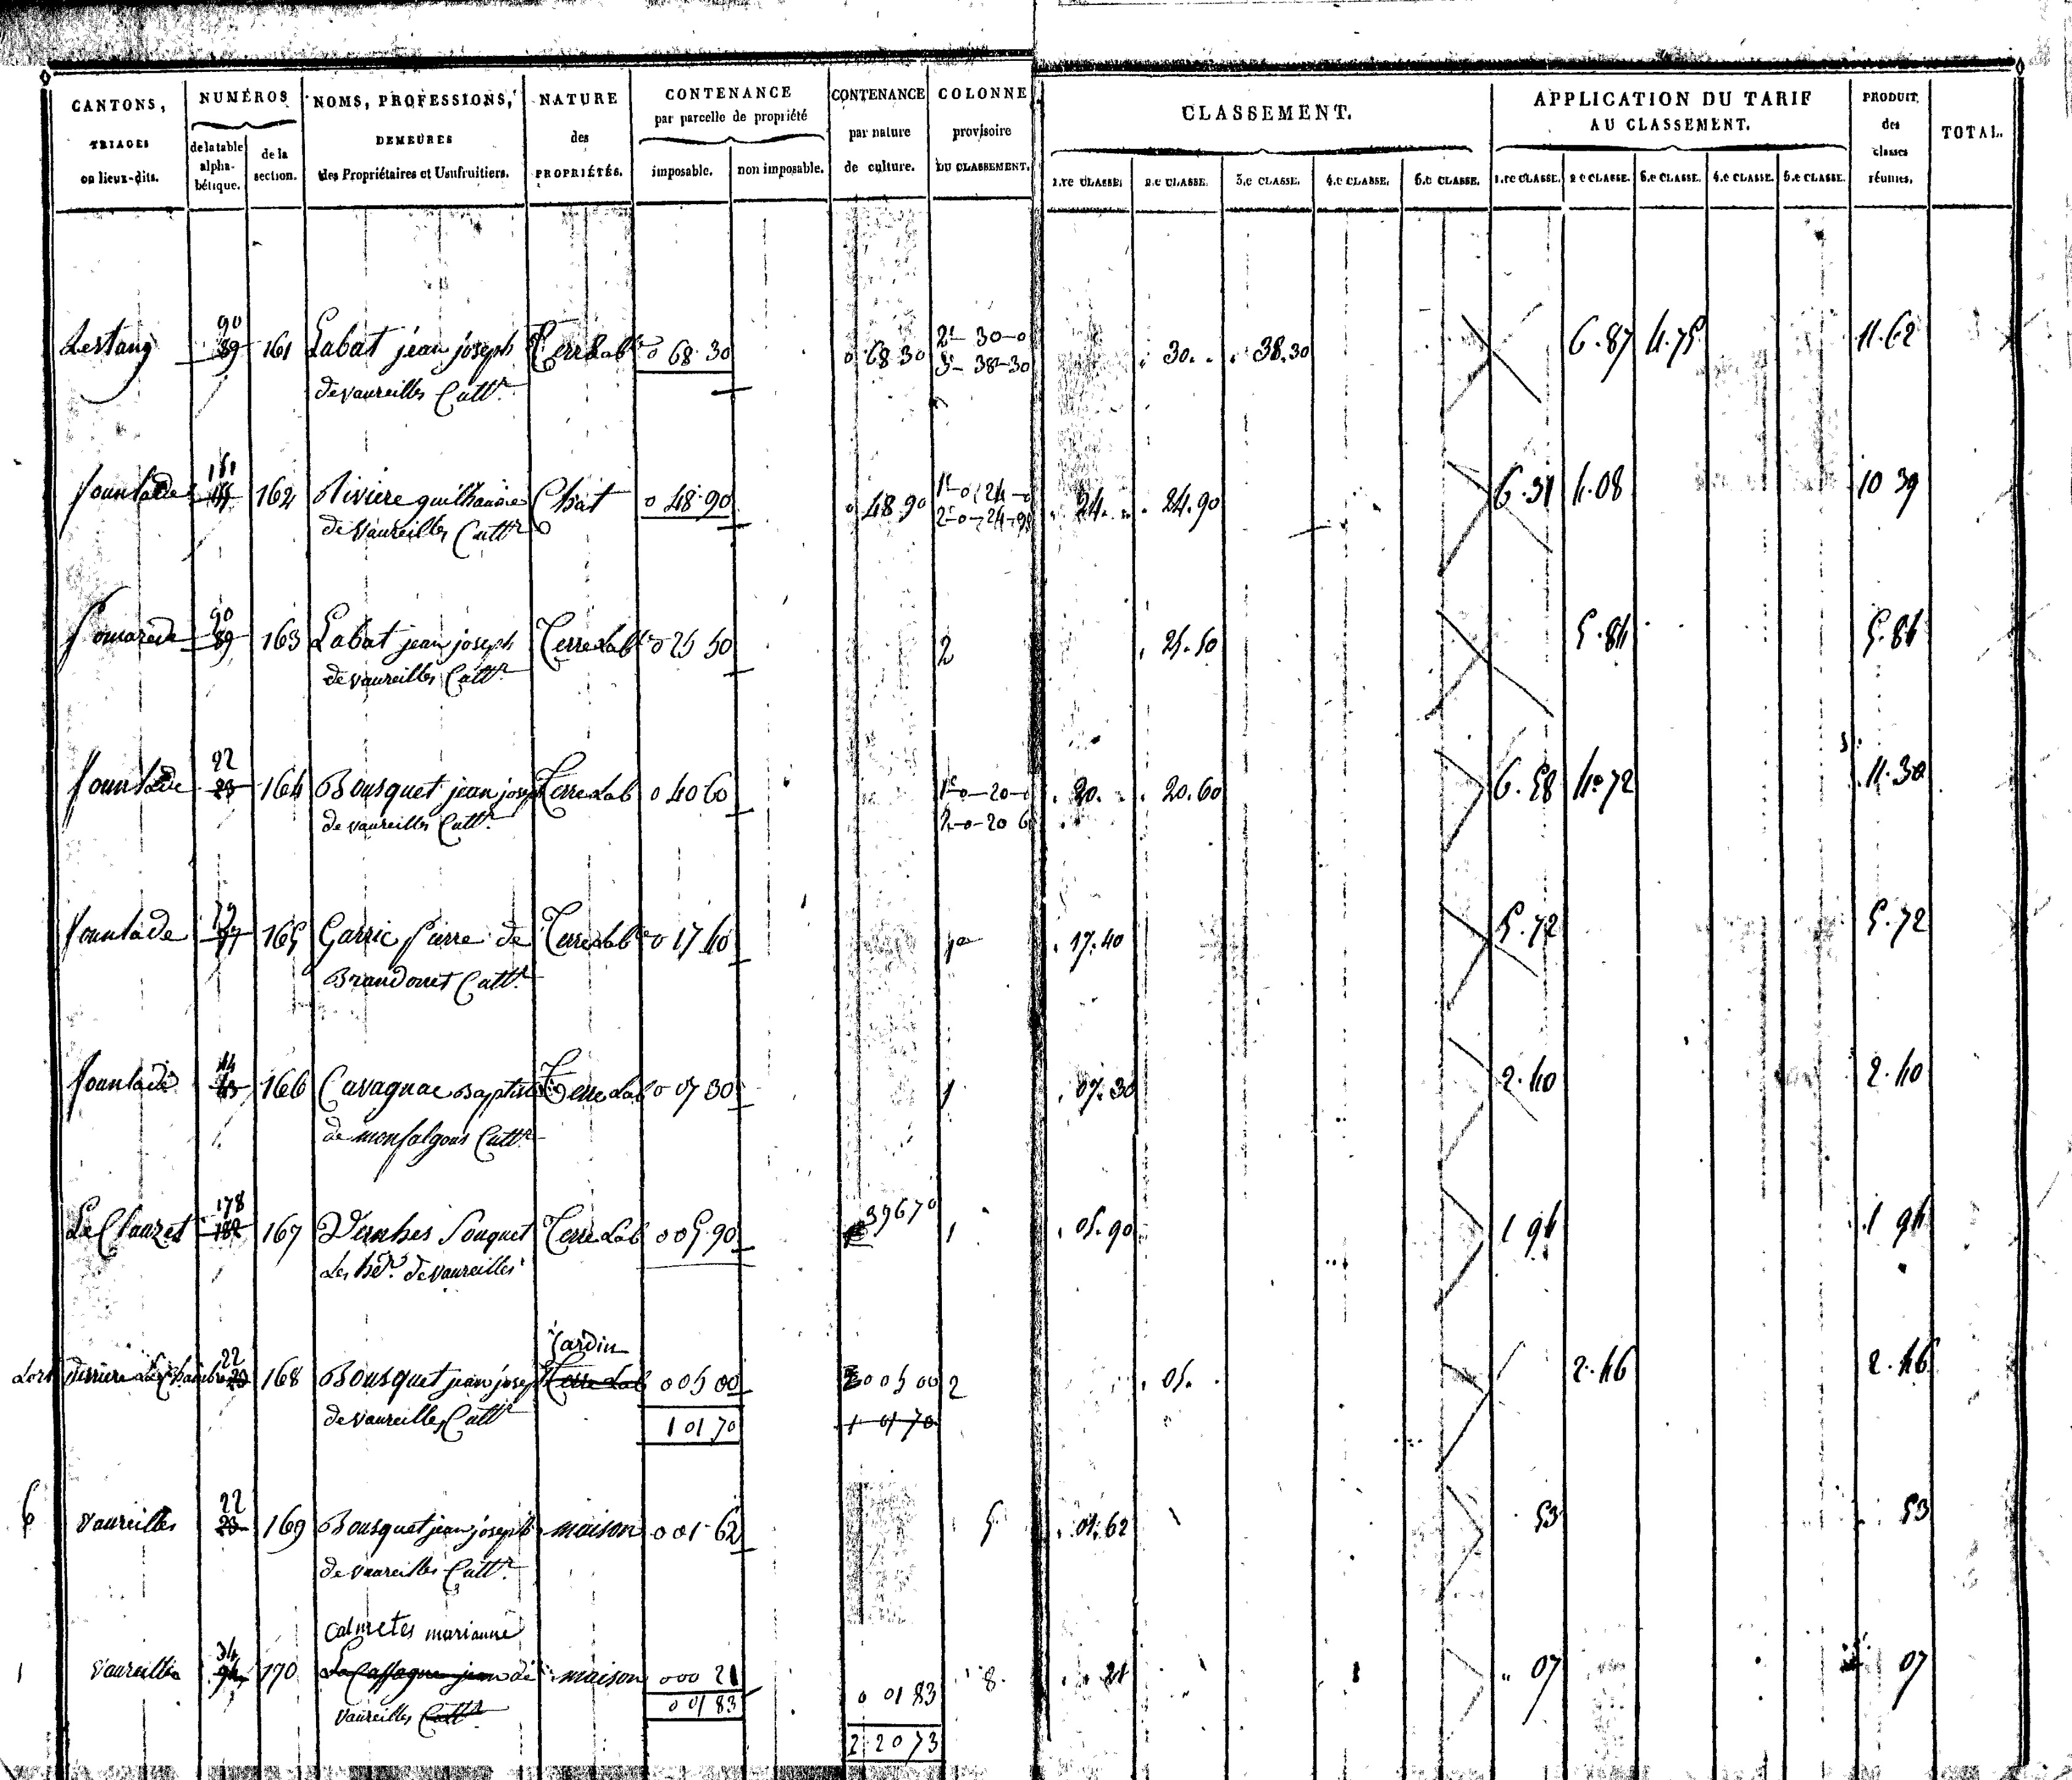 CANTONS, TRIAGES ou lieux-dits. NUMÉROS de la table alphabétique. de la section. NOMS, PROFESSIONS, DEMEURES des Propriétaires et Usufruitiers. NATURE des PROPRIÉTÉS. CONTENANCE par parcelle de propriété imposable. non imposable. CONTENANCE par nature de culture. COLONNE provisoire DU CLASSEMENT. CLASSEMENT. 1.re CLASSE. 2.e CLASSE. 3.e CLASSE. 4.e CLASSE. 5.e CLASSE. APPLICATION DU TARIF AU CLASSEMENT. 1.re CLASSE. 2.e CLASSE. 3.e CLASSE. 4.e CLASSE. 5.e CLASSE. PRODUIT des classes réunies. TOTAL.
Lestang 90 89 161 Labat jean joseph Terre Lab 0 68 30 0 68 30 2e 30-0 30. 38.30 6.87 4.75 11.62
de vaureilles Cultr 3e 38-30
162 Riviere 0 48 90 0 48 90 1e 0-24-0 24. 24.90 6.31 4.08 10 39
de Vaureilles Cultr 2e 0-24-90
90 89 163 Labat jean joseph Terre Lab 0 25 50 2 25.50 5.84 5.84
de vaureilles Cultr
22 23 164 Bousquet jean joseph Terre Lab 0 40 60 1e 0-20-0 20. 20.60 6.58 4.72 11.30
de vaureilles Cultr 2-0-20 6
165 Garric pierre de Terre Lab 0 17 40 1e 17.40 5.72 5.72
Brandonet Cultr
44 166 Cavagnac Baptiste Terre Lab 0 07 30 1 07.30 2.40 2.40
de monfalgous Cultr
Le Clauzet 178 182 167 Souquet Terre Lab 0 05 90 39670 1 05.90 1 94 1 94
Les hér. de vaureilles
Lort derriere 22 23 168 Bousquet jean joseph Jardin Terre Lab 0 05 00 0 05 00 2 05. 2.46 2.46
de vaureilles Cultr 1 01 70 1 01 70
6 vaureilles 22 23 169 Bousquet jean joseph maison 0 01 62 5 01.62 53 53
de vaureilles Cultr
Calmetes marianne
1 vaureilles 34 94 170 Lacassagne jean de maison 000 21 0 01 83 8. 21 07 07
vaureilles Cultr 0 01 83
2 20 73